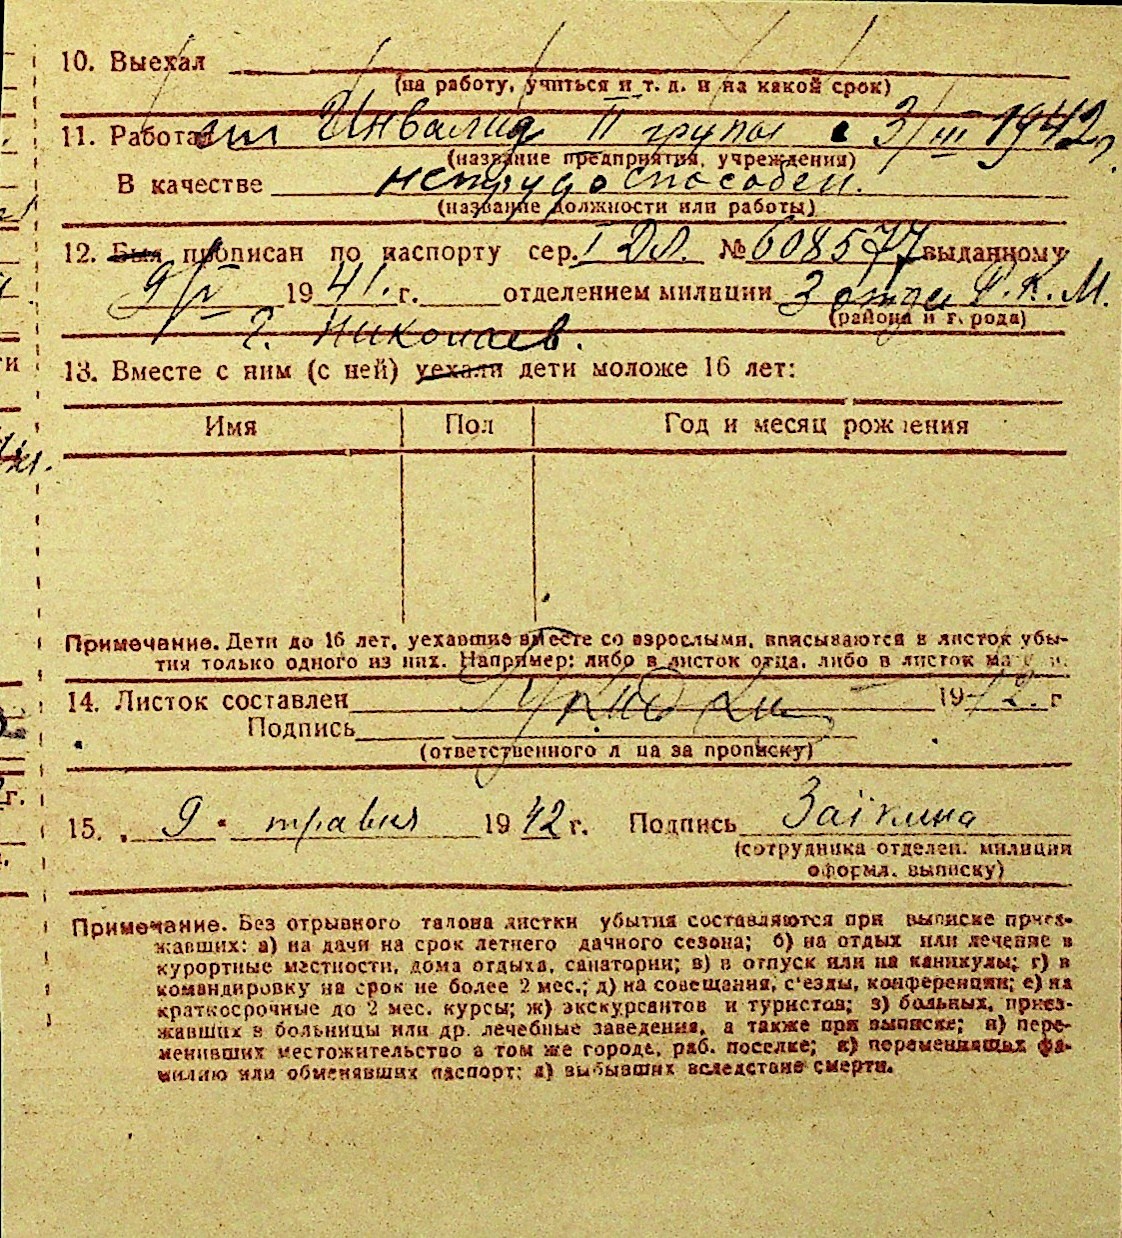 10. Выехал
(на работу, учиться и т. д. и на какой срок)
11. Работал Инвалид II групы с 3/III 1942 г.
(название предприятия, учреждения)
В качестве нетрудоспособен.
(название должности или работы)
12. Был прописан по паспорту сер. I ДЛ. № 608577 выданному
9/V 1941. г. отделением милиции 3 отдел Р. К. М.
(района и города)
г. Николаев.
13. Вместе с ним (с ней) уехали дети моложе 16 лет:
Имя Пол Год и месяц рождения
Примечание. Дети до 16 лет, уехавшие вместе со взрослыми, вписываются в листок убы-
тия только одного из них. Например: либо в листок отца, либо в листок матери.
14. Листок составлен 1942. г
Подпись
(ответственного лица за прописку)
15. „ 9 " травня 1942 г. Подпись Заїкина
(сотрудника отделен. милиции
оформл. выписку)
Примечание. Без отрывного талона листки убытия составляются при выписке приез-
жавших: а) на дачи на срок летнего дачного сезона; б) на отдых или лечение в
курортные местности, дома отдыха, санатории; в) в отпуск или на каникулы; г) в
командировку на срок не более 2 мес.; д) на совещания, с'езды, конференции; е) на
краткосрочные до 2 мес. курсы; ж) экскурсантов и туристов; з) больных, приез-
жавших в больницы или др. лечебные заведения, а также при выписке; и) пере-
менивших местожительство в том же городе, раб. поселке; к) переменивших фа-
милию или обменявших паспорт; л) выбывших вследствие смерти.